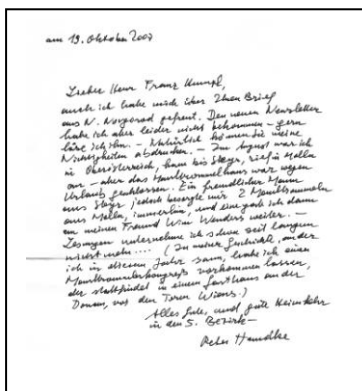 am 19. Oktober 2007
Lieber Herr Franz Kumpl,
auch ich habe mich über Ihren Brief
aus N. Novgorod gefreut. Den neuen Newsletter
habe ich aber leider nicht bekommen – gern
läse ich ihn. – Natürlich können Sie meine
Nichtigkeiten abdrucken. – Im August war ich
in Oberösterreich, kam bis Steyr, rief in Molln
an – aber das Maultrommelhaus war wegen
Urlaub geschlossen. Ein freundlicher Mann
aus Steyr jedoch besorgte mir 2 Maultrommeln
aus Molln, immerhin, und eine gab ich dann
an meinen Freund Wim Wenders weiter. –
Lesungen unternehme ich schon seit langem
nicht mehr.... (In meiner Geschichte, an der
ich in diesem Jahr sann, habe ich einen
Maultrommlerkongreß vorkommen lassen,
der stattfindet in einem Gasthaus an der
Donau, vor den Toren Wiens.)
Alles Gute, und gute Heimkehr
in den 5. Bezirk –
Peter Handke